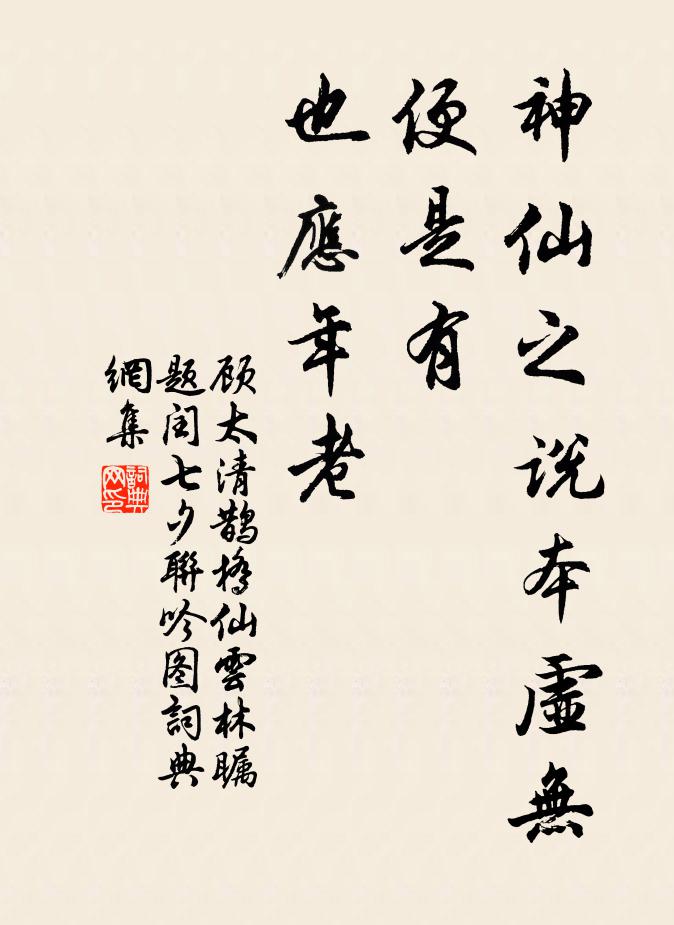 神仙之说本虚無
便是有
也應年老
顾太清鹊橋仙雲林瞩
题闰七夕聯吟图詞典
網集
詞典
网印